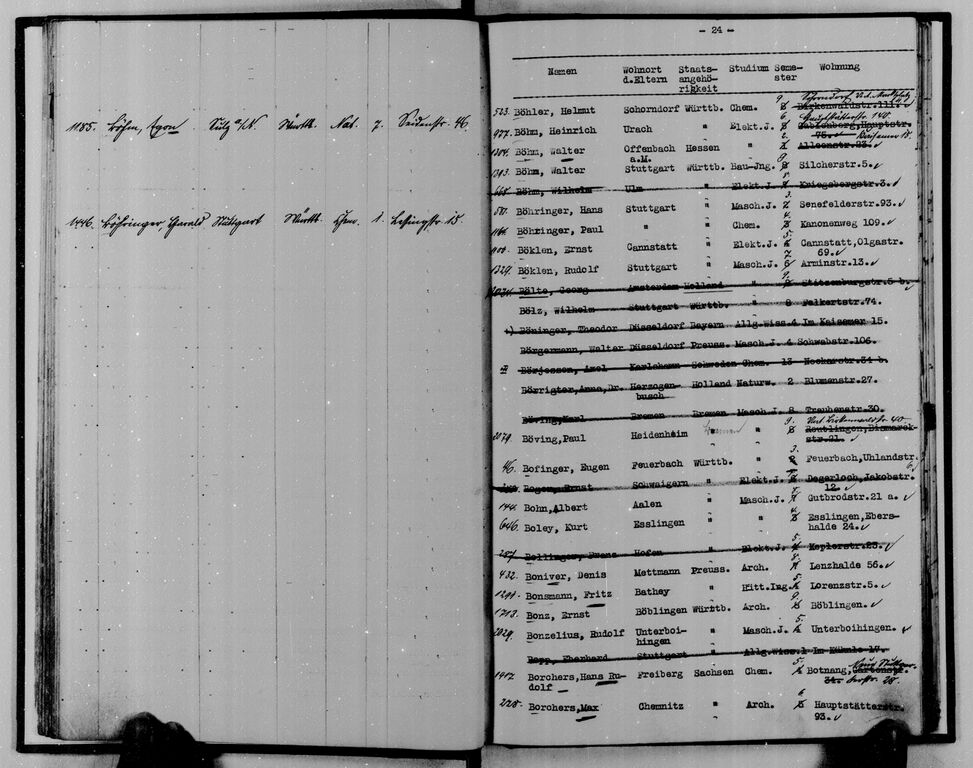 1185. Böhm, Egon. Sulz a/N. Württ. Nat. 7. Seidenstr. 46.
1446. Böhringer, Gerald Stuttgart Württ. Chem. 1. Lessingstr. 15.
- 24 -
Namen Wohnort d.Eltern Staats- angehö- rigkeit Studium Seme- ster Wohnung
523. Böhler, Helmut Schorndorf Württb. Chem. 9. Birkenwaldstr.111.
977. Böhm, Heinrich Urach " Elekt.J. 6. Gablenberg, Hauptstr.
75.
1304. Böhm, Walter Offenbach Hessen " Alleenstr.23.
a.M.
1303. Böhm, Walter Stuttgart Württb. Bau-Jng. 9. Silcherstr.5.
668. Böhm, Wilhelm Ulm " Elekt.J. Kriegsbergstr.3.
Böhringer, Hans Stuttgart " Masch.J. 3. Senefelderstr.93.
Böhringer, Paul " " Chem. 4. Kanonenweg 109.
Böklen, Ernst Cannstatt " Elekt.J. 5. Cannstatt,Olgastr.
69.
1329. Böklen, Rudolf Stuttgart " Masch.J. 7 Arminstr.13.
Bölte, Georg Amsterdam Holland " 9. Stitzenburgstr.5 b.
Bölz, Wilhelm Stuttgart Württb. " 8 Falkertstr.74.
Böninger, Theodor Düsseldorf Bayern Allg.Wiss. 4 Im Kaisemer 15.
Börgermann, Walter Düsseldorf Preuss. Masch.J. 4 Schwabstr.106.
Börjesson, Axel Karlshamn Schweden Chem. 13 Neckarstr.34 b.
Börrigter,Anna,Dr. Herzogen- Holland Naturw. 2 Blumenstr.27.
busch
Böving,Karl Bremen Bremen Masch.J. 8 Traubenstr.30.
2079. Böving,Paul Heidenheim " " 9. Reutlingen,Bismarck-
str.91.
46. Bofinger, Eugen Feuerbach Württb. " 3. Feuerbach,Uhlandstr.
6
Bogen, Ernst Schwaigern " Elekt.J. Degerloch,Jakobstr.
12.
144. Bohn,Albert Aalen " Masch.J. Gutbrodstr.21 a.
646. Boley, Kurt Esslingen " " 4. Esslingen,Ebers-
halde 24.
287. Bollinger, Franz Hofen " Elekt.J. 5. Keplerstr.23.
432. Boniver, Denis Mettmann Preuss. Arch. Lenzhalde 56.
1291. Bonsmann, Fritz Bathey " Hitt.Ing. 5. Lorenzstr.5.
1713. Bonz, Ernst Böblingen Württb. Arch. 9. Böblingen.
2029. Bonzelius, Rudolf Unterboi- " Masch.J. 5. Unterboihingen.
hingen
Bopp, Eberhard Stuttgart " Allg.Wiss. 1 Im Kühnle 17.
1917. Borchers,Hans Ru- Freiberg Sachsen Chem. 5. Botnang,Gartenstr.
dolf 34. 28.
228. Borchers,Max Chemnitz " Arch. 6. Hauptstätterstr.
93.